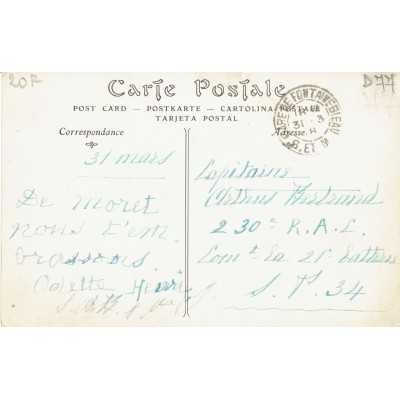 20F
D77
Carte Postale
POST CARD — POSTKARTE — CARTOLINA POSTALE
TARJETA POSTAL
Correspondance
Adresse
FONTAINEBLEAU
31 - 3
S. ET M.
31 mars
De Moret
nous t'em
brassons
Odette Henri
Capitaine
Bertrand
230e R.A.C.
Comt la 21e Batterie
S. Ps. 34